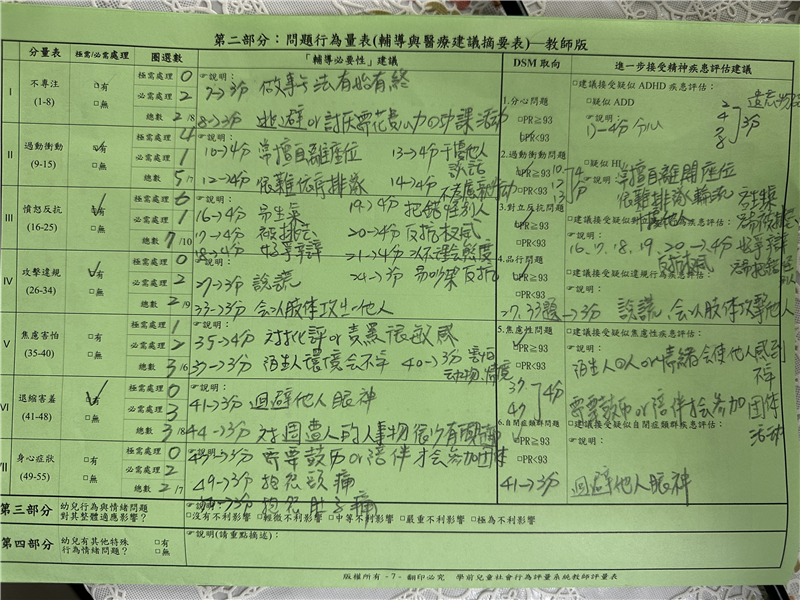 第二部分：問題行為量表(輔導與醫療建議摘要表)—教師版
分量表 極需/必需處理 圈選數 「輔導必要性」建議 DSM 取向 進一步接受精神疾患評估建議
I 不專注 (1-8) □有 □無
極需處理 0
必需處理 2
總數 2/8
☞說明：
7→3分 做事無法有始有終
8→3分 逃避or討厭需花費心力的功課活動
1.分心問題
□PR≥93
□PR<93
□建議接受疑似 ADHD 疾患評估：
□疑似 ADD
☞說明：
1→4分 分心
3分
II 過動衝動 (9-15) □有 □無
極需處理 4
必需處理 1
總數 5/7
☞說明：
10→4分 常擅自離座位 13→4分 干擾他人說話
12→4分 很難依序排隊 14→4分
2.過動衝動問題
□PR≥93
□PR<93
□疑似 HI
☞說明：
常擅自離開座位
很難排隊輪流
III 憤怒反抗 (16-25) □有 □無
極需處理 6
必需處理 1
總數 7/10
☞說明：
16→4分 易生氣 19→4分 把錯怪別人
17→4分 20→4分 反抗權威
18→4分 好爭辯 21→4分
24→3分
3.對立反抗問題
□PR≥93
□PR<93
☞說明：
16、17、18、19、20→4分
IV 攻擊違規 (26-34) □有 □無
極需處理 0
必需處理 2
總數 2/9
☞說明：
27→3分 說謊
33→3分 會以肢體攻擊他人
4.品行問題
□PR≥93
□PR<93
□建議接受疑似違規行為疾患評估：
☞說明：
27、33題→3分 說謊、會以肢體攻擊他人
V 焦慮害怕 (35-40) □有 □無
極需處理 1
必需處理 2
總數 3/6
☞說明：
35→4分 對批評or責罵很敏感
37→3分 陌生人環境會不安 40→3分 害怕動物、
5.焦慮性問題
□PR≥93
□PR<93
□建議接受疑似焦慮性疾患評估：
☞說明：
陌生人
VI 退縮害羞 (41-48) □有 □無
極需處理 0
必需處理 3
總數 3/8
☞說明：
41→3分 迴避他人眼神
44→3分 對周遭人的人事物很少有
需要鼓勵or陪伴才會參加團體
4分
需要鼓勵or陪伴才會參加團體活動
6.自閉症類群問題
□PR≥93
□PR<93
□建議接受疑似自閉症類群疾患評估：
☞說明：
41→3分 迴避他人眼神
VII 身心症狀 (49-55) □有 □無
極需處理 0
必需處理 2
總數 2/7
☞說明：
49→3分 抱怨頭痛
抱怨肚子痛
第三部分 幼兒行為與情緒問題對其整體適應影響？ □沒有不利影響 □輕微不利影響 □中等不利影響 □嚴重不利影響 □極為不利影響
第四部分 幼兒有其他特殊行為情緒問題？ □有 □無 ☞說明(請重點描述)：
版權所有 - 7 - 翻印必究 學前兒童社會行為評量系統教師評量表